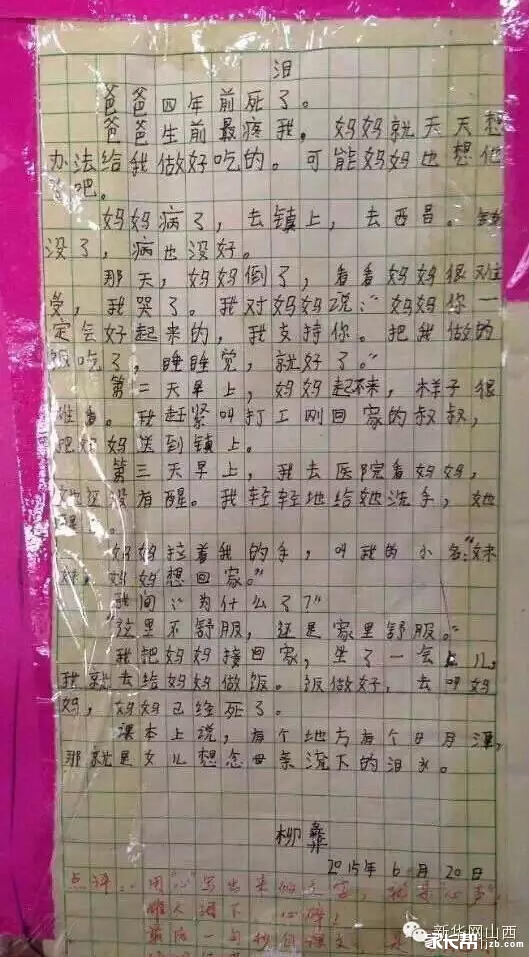 泪
爸爸四年前死了。
爸爸生前最疼我，妈妈就天天想
办法给我做好吃的。可能妈妈也想他
了吧。
妈妈病了，去镇上，去西昌。钱
没了，病也没好。
那天，妈妈倒了，看看妈妈很难
受，我哭了。我对妈妈说：“妈妈你一
定会好起来的，我支持你。把我做的
饭吃了，睡睡觉，就好了。”
第二天早上，妈妈起不来，样子很
难看。我赶紧叫打工刚回家的叔叔，
把妈妈送到镇上。
第三天早上，我去医院看妈妈，
她还没有醒。我轻轻地给她洗手，她
醒了。
妈妈拉着我的手，叫我的小名：“妹
妹，妈妈想回家。”
我问：“为什么了？”
“这里不舒服，还是家里舒服。”
我把妈妈接回家，坐了一会儿，
我就去给妈妈做饭。饭做好，去叫妈
妈，妈妈已经死了。
课本上说，有个地方有个日月潭，
那就是女儿想念母亲流下的泪水。
柳彝
2015年6月20日
点评：用“心”写出来的文字，就是“心声”，
催人泪下 心碎！
新华网山西
家长帮 jzb.com